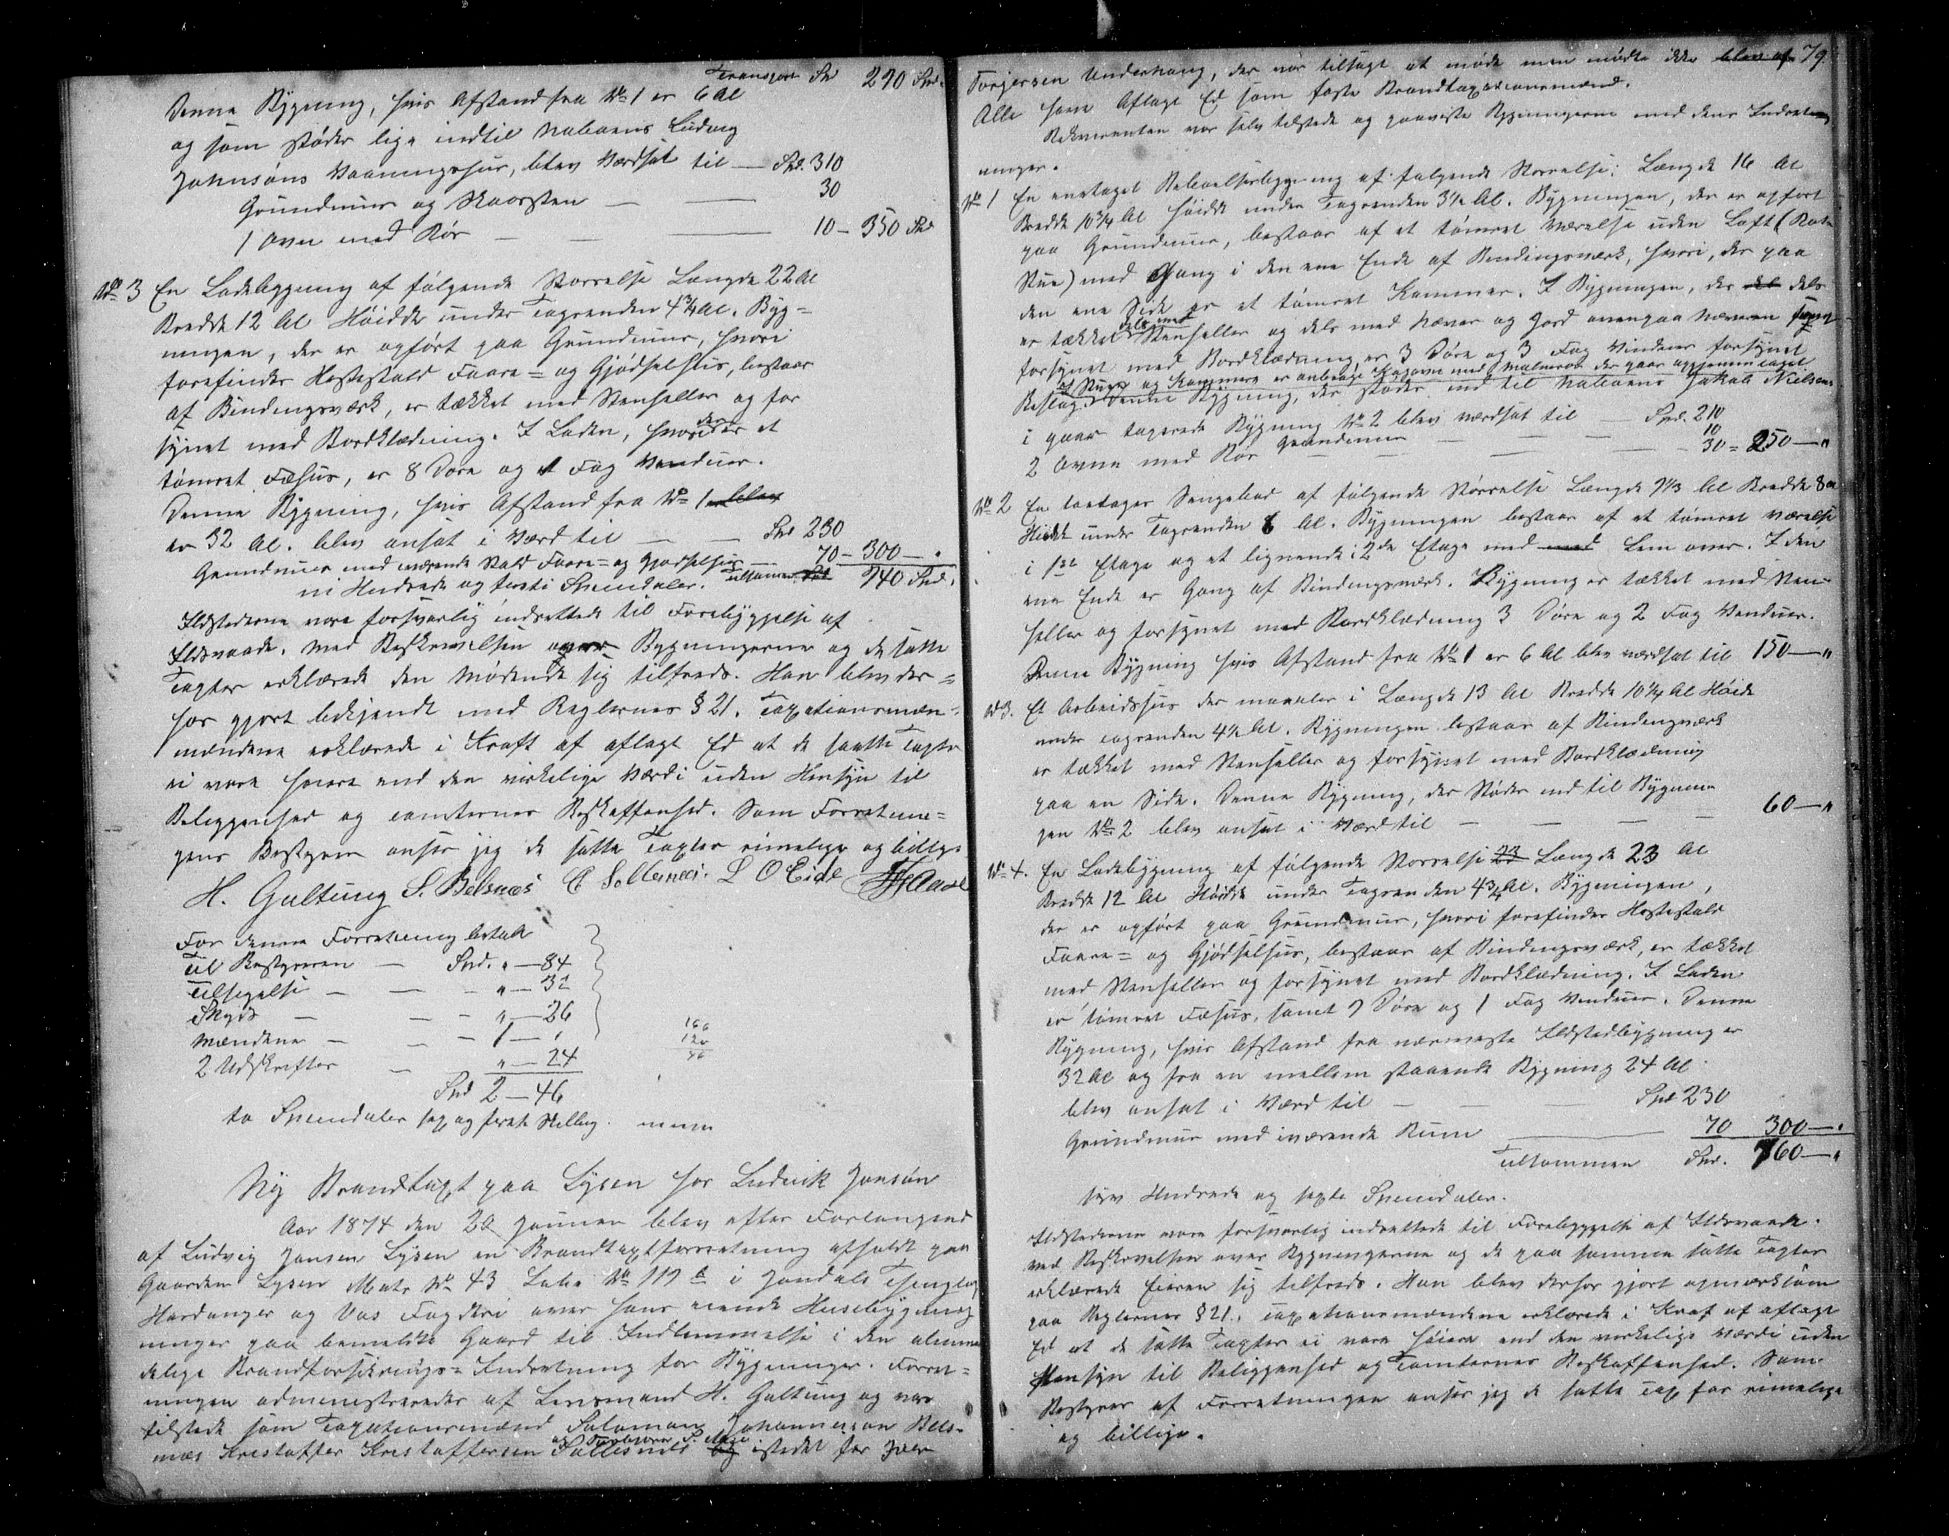 Transport Spd 290 Spd.
Denne Bygning, hvis Afstand fra No 1 er 6 Al
og som støder lige indtil Naboens Ludvig
Johnsøns Vaaningshus, blev værdsat til — Spd. 310
Grundmur og Skorsten — — 30
1 Ovn med Rør — — — 10 — 350 Spd
No 3 En Ladebygning af følgende Størrelse Længde 22 Al
Bredde 12 Al Høidde under Tagrenden 4 3/4 Al. Byg=
ningen, der er opført paa Grundmur, hvori
forefindes Hestestald Faare= og Gjødselhus, bestaar
af Bindingsværk, er tækket med Stenheller og for
synet med Bordklædning. I Laden, hvori der er et
tømret Fæhus, er 8 Døre og 1 Fag Vinduer.
Denne Bygning, hvis Afstand fra No 1 blev
er 32 Al. blev ansat i Værd til — — Spd 230
Grundmur med værende Stald Faare= og Gjødselhus — 70 — 300 — "
ni Hundrede og forti Speciedaler. Tilsammen Spd 940 Spd.
Ildstederne vare forsvarlig indrettede til Forebyggelse af
Ildsvaade. Med Beskrivelsen over Bygningerne og de satte
Taxter erklærede den Mødende sig tilfreds. Han blev der=
for gjort bekjendt med Reglernes § 21. Taxationsmæn=
mændene erklærede i Kraft af aflagt Ed at de satte Taxter
ei vare høiere end den virkelige Værdi uden Hensyn til
Beliggenhed og Tomternes Beskaffenhed. Som Forretnin=
gens Bestyrer anser jeg de satte Taxter rimelige og billige
H. Galtung S. Belsnæs C Sollesnes. L O Eide
For denne Forretning betalt
Til Bestyreren — Spd. " — 84
Tilsigelse — — - " — 32
Skyds — — - " — 26
Mændene — — - 1 — "
2 Udskrifter — " — 24
Spd 2 — 46
to Speciedaler sex og førti Skilling.
Ny Brandtaxt paa Lysen for Ludvik Jonsøn
Aar 1874 den 20 Januar blev efter Forlangend
af Ludvig Jansen Lysen en Brandtaxtforretning afholdt paa
Gaarden Lysen Matr No 43 Løbe No 119 b i Jondals Thinglag
Hardanger og Vos Fogderi over hans eiende Husebygning
ninger paa bemeldte Gaard til Indlemmelse i den almin
delige Brandforsikrings=Indretning for Bygninger. Forret=
ningen administreredes af Lensmand H. Galtung og var
tilstede som Taxationsmænd Salamon Johannesson Bels-
næs Kristoffer Kristoffersen Sollesnes og istedet for Peder
Torgersen Underhaug, der var tilsagt at møde men mødte ikke blev af 79
Alle have aflagt Ed som faste Brandtaxationsmænd.
Rekvirenten var selv tilstede og paaviste Bygningerne med dens Indret
ninger.
No 1 En enetages Beboelsesbygning af følgende Størrelse: Længde 16 Al
Bredde 10 3/4 Al Høidde under Tagrenden 3 1/2 Al. Bygningen, der er opført
paa Grundmur, bestaar af et tømret Værelse uden Loft (Røg-
Stue) med Gang i den ene Ende af Bindingsværk, hvori, der paa
den ene Side er et tømret Kammer. I Bygningen, der del dels
er tækket dels med Stenheller og dels med Næver og Jord ovenpaa Næveren samt
forsynet med Bordklædning er 3 Døre og 3 Fag Vinduer forsynet
i Stuen og Kammeret er anbragt Kogeovn med Malmrør der gaar igjennem taget
Beslag. Denne Bygning, der støder ind til Naboens Jakob Nielsens
i gaar taxerede Bygning No 2 blev værdsat til — Spd. 210
Grundmur — — — 10
2 Ovne med Rør — — — — 30 = 250 — "
No 2 En toetages Sengebod af følgende Størrelse Længde 7 1/3 Al Bredde 8 Al
Høidde under Tagrenden 6 Al. Bygningen bestaar af et tømret Værelse
i 1ste Etage og et lignende i 2de Etage med med Lem over. I den
ene Ende er Gang af Bindingsværk. Bygning er tækket med Sten-
heller og forsynet med Bordklædning 3 Døre og 2 Fag Vinduer.
Denne Bygning hvis Afstand fra No 1 er 6 Al blev værdsat til 150 — "
No 3. Et Arbeidshus der maaler i Længde 13 Al Bredde 10 1/4 Al Høide
under Tagrenden 4 1/2 Al. Bygningen bestaar af Bindingsværk
er tækket med Stenheller og forsynet med Bordklædning
paa en Side. Denne Bygning, der støder ind til Bygnin-
gen No 2 blev ansat i Værd til — — — — 60 — "
No 4. En Ladebygning af følgende Størrelse 23 Længde 23 Al
Bredde 12 Al Høidde under Tagrenden 4 3/4 Al. Bygningen,
der er opført paa Grundmur, hvori forefindes Hestestald
Faare= og Gjødselhus, bestaar af Bindingsværk, er tækket
med Stenheller og forsynet med Bordklædning. I Laden
er tømret Fæhus, samt 7 Døre og 1 Fag Vinduer. Denne
Bygning, hvis Afstand fra nærmeste Ildstedbygning er
32 Al og fra en mellem staaende Bygning 24 Al
blev ansat i Værd til — — — Spd 230
Grundmur med iværende Rum — 70 300 — "
Tilsammen Spd. 760 — "
syv Hundrede og sexti Speciedaler.
Ildstederne vare forsvarlig indrettede til Forebyggelse af Ildsvaade.
Med Beskrivelsen over Bygningerne og de paa samme satte Taxter
erklærede Eieren sig tilfreds. Han blev derfor gjort opmærksom
paa Reglernes § 21. Taxationsmændene erklærede i Kraf af aflagt
Ed at de satte Taxter ei vare høiere end den virkelige Værdi uden
Hensyn til Beliggenhed og Tomternes Beskaffenhed. Som
Bestyrer af Forretningen anser jeg de satte Tax for rimelige
og billige.